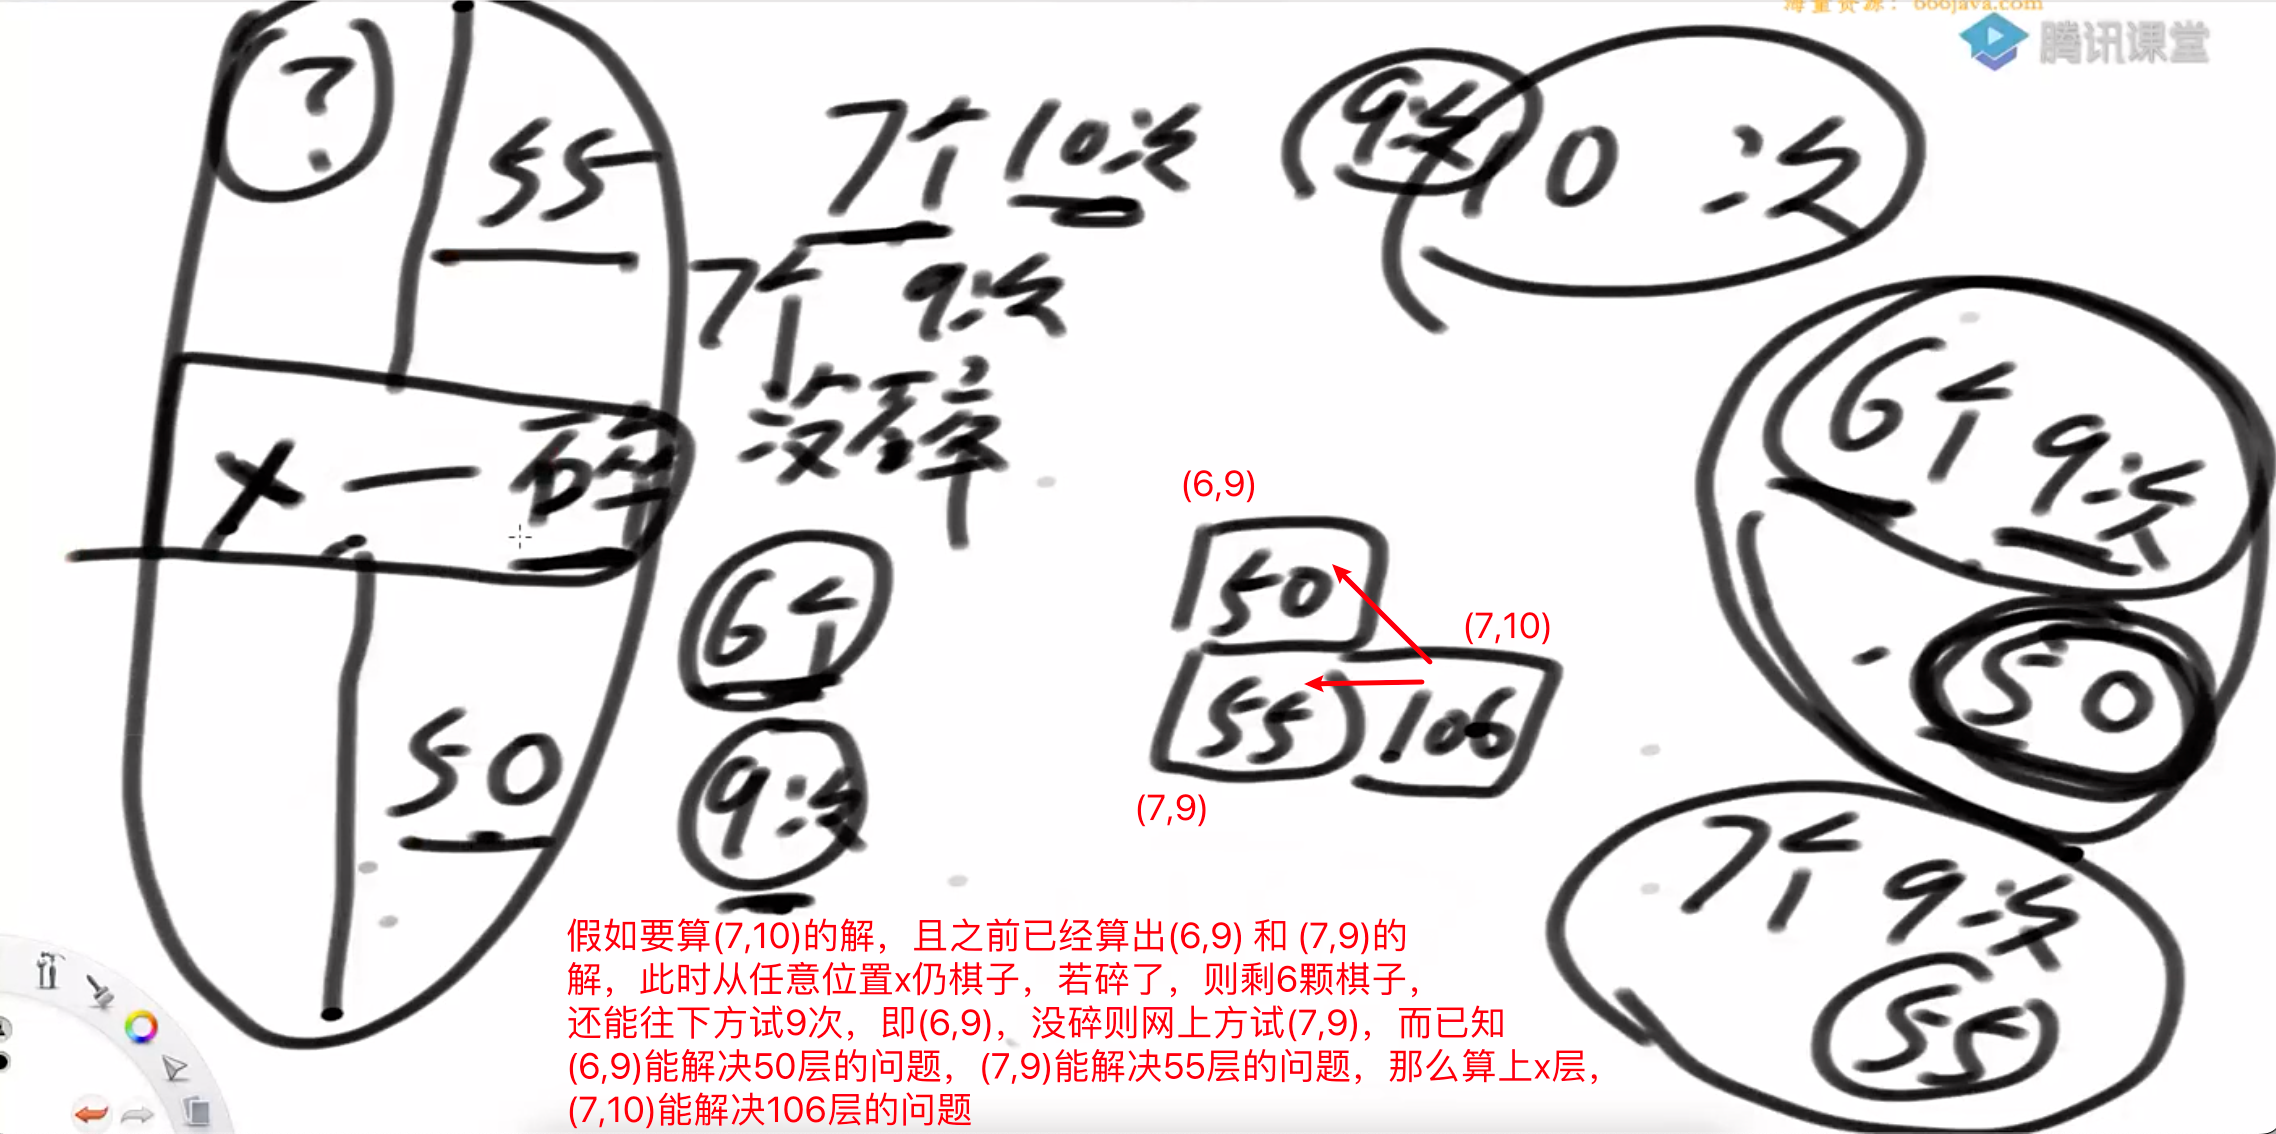 海量资源：666java.com
腾讯课堂
?
55
7个 10次
9次
10次
7个 9次
没碎
x — 碎
6个 9次
50
(6,9)
50
(7,10)
6个
9次
55
106
(7,9)
50
7个 9次
55
假如要算(7,10)的解，且之前已经算出(6,9) 和 (7,9)的
解，此时从任意位置x仍棋子，若碎了，则剩6颗棋子，
还能往下方试9次，即(6,9)，没碎则网上方试(7,9)，而已知
(6,9)能解决50层的问题，(7,9)能解决55层的问题，那么算上x层，
(7,10)能解决106层的问题